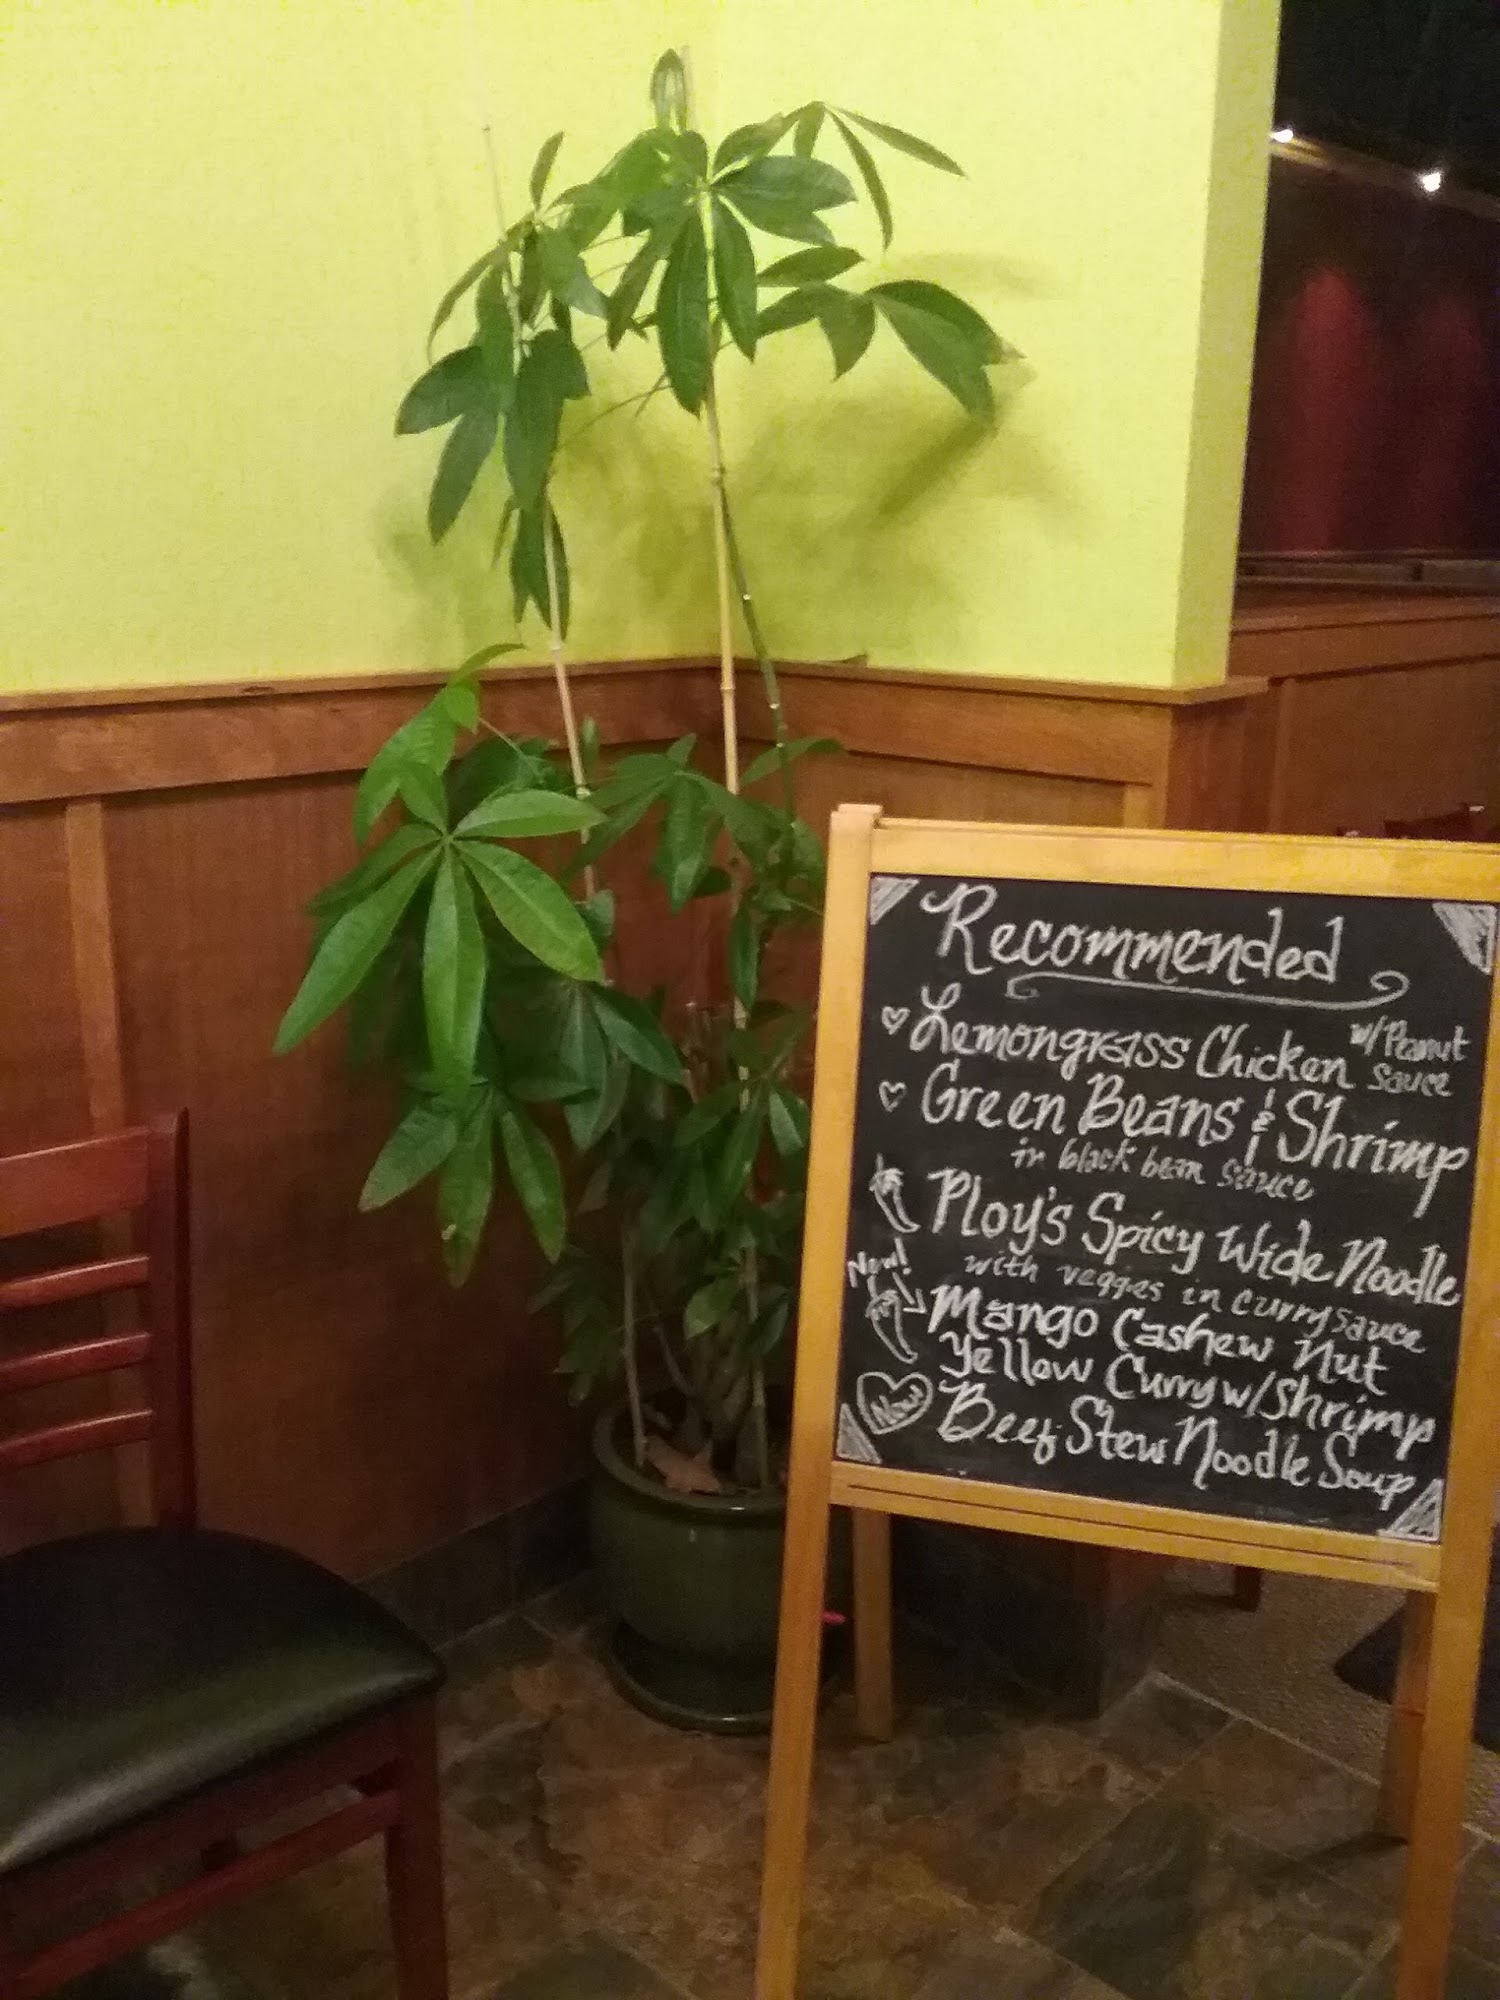 Recommended
Lemongrass Chicken w/Peanut sauce
Green Beans & Shrimp
in black bean sauce
Ploy's Spicy Wide Noodle
with veggies in curry sauce
New!
Mango Cashew Nut
Yellow Curry w/shrimp
New
Beef Stew Noodle Soup